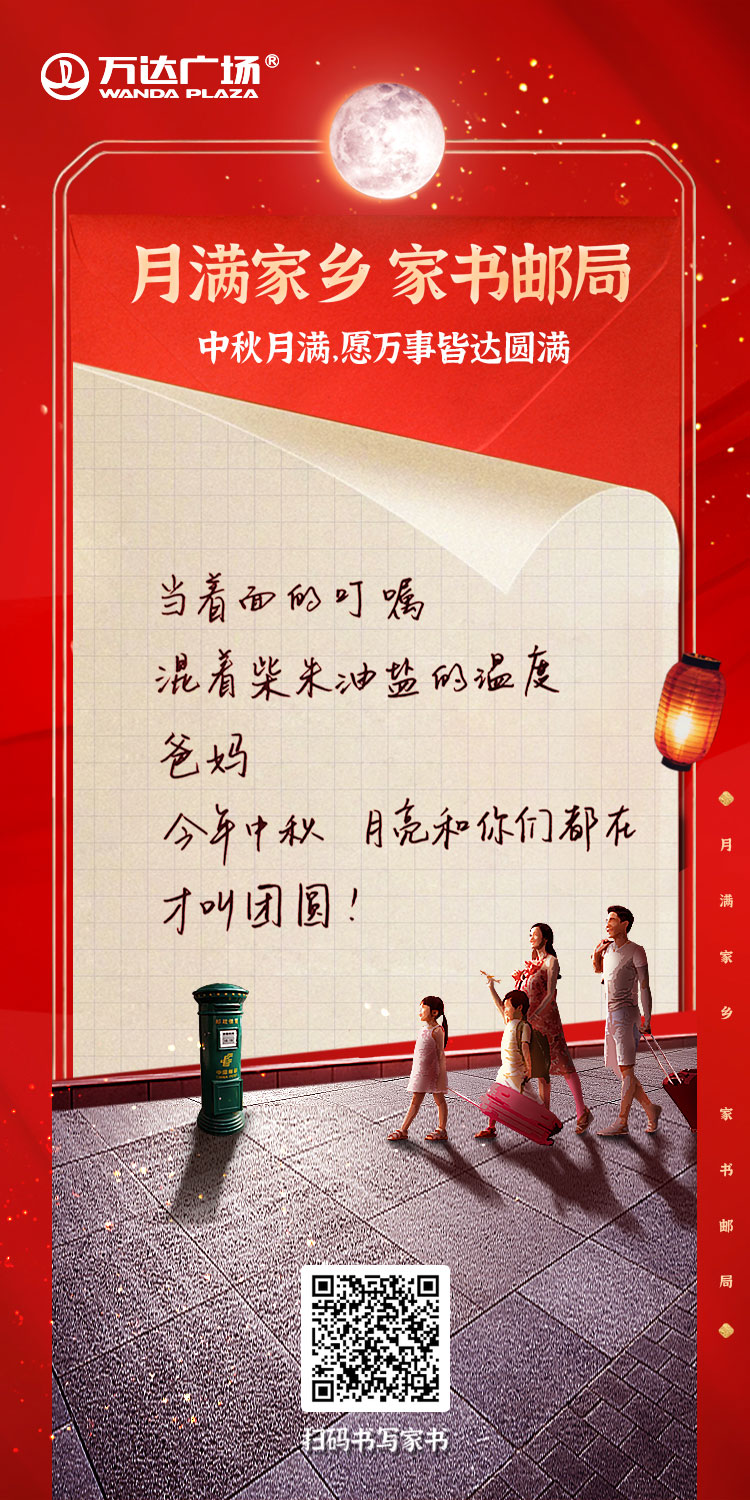 万达广场®
WANDA PLAZA
月满家乡 家书邮局
中秋月满,愿万事皆达圆满
当着面的叮嘱
混着柴米油盐的温度
爸妈
今年中秋 月亮和你们都在
才叫团圆!
月满家乡 家书邮局
中国邮政
CHINA POST
扫码书写家书